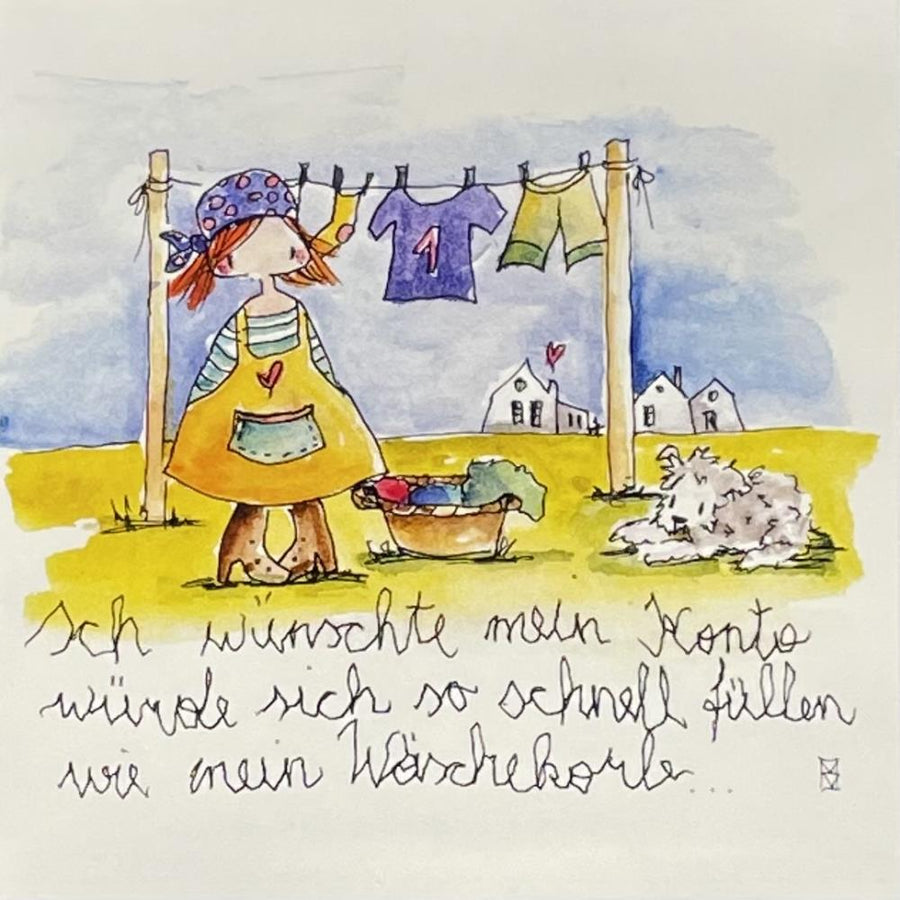 1
Ich wünschte mein Konto
würde sich so schnell füllen
wie mein Wäschekorb...